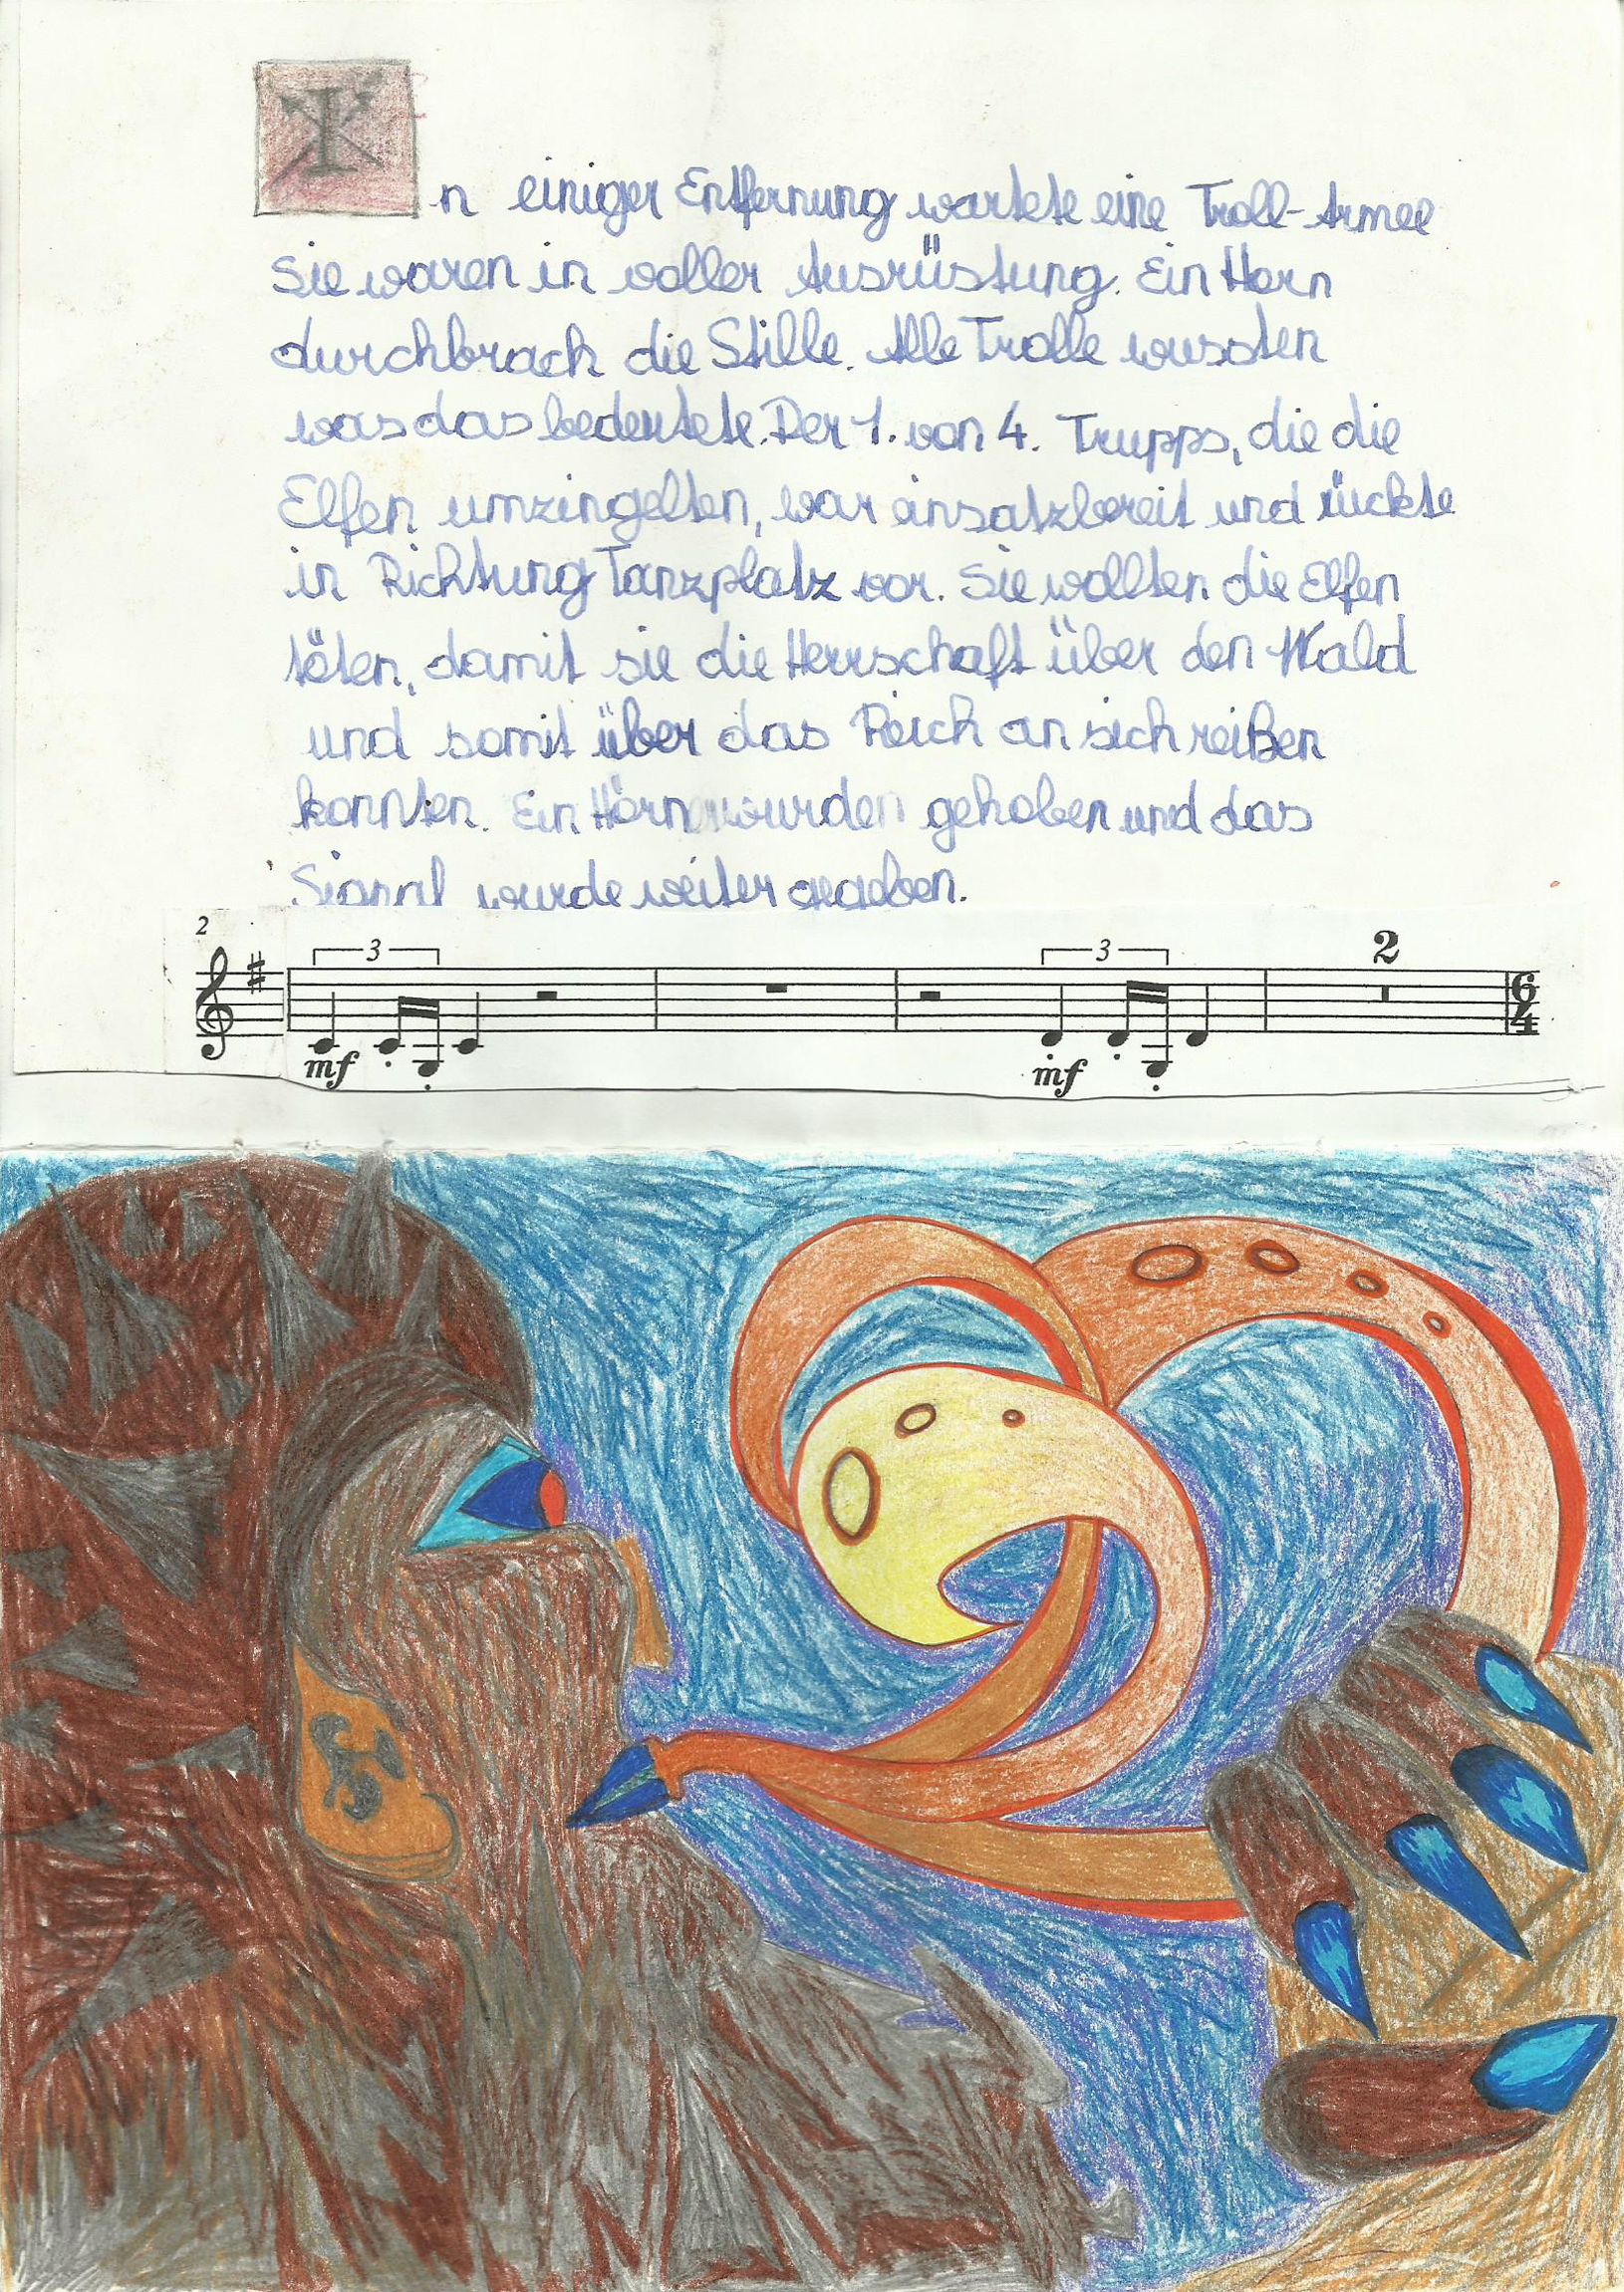 In einiger Entfernung wartete eine Troll-Armee
Sie waren in voller Ausrüstung. Ein Horn
durchbrach die Stille. Alle Trolle wussten
was das bedeutete. Der 1. von 4. Trupps, die die
Elfen umzingelten, war einsatzbereit und rückte
in Richtung Tanzplatz vor. Sie wollten die Elfen
töten, damit sie die Herrschaft über den Wald
und somit über das Reich an sich reißen
konnten. Ein Hörner wurden gehoben und das
Signal wurde weiter gegeben.
2
3 3 2
6
4
mf mf